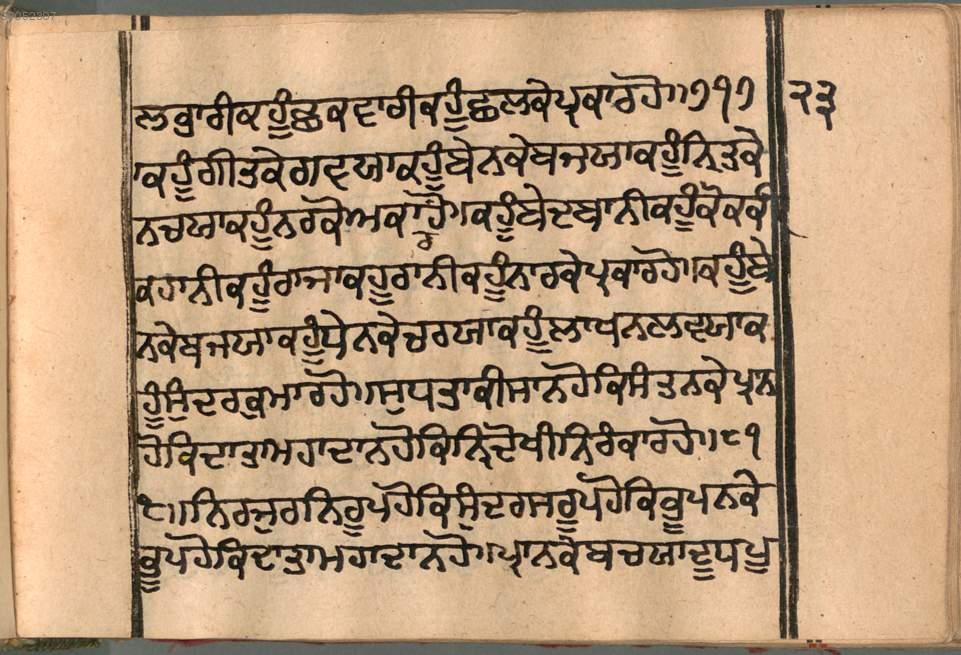 ਲਬ੍ਰਾਰੀਕਹੂੰਛਕਵਾਰੀਕਹੂੰਛਲਕੇਪ੍ਰਕਾਰਹੋ॥੭੧੧ ੨੩
ਾਕਹੂੰਗੀਤਕੇਗਵਯਾਕਹੂੰਬੇਨਕੇਬਜਯਾਕਹੂੰਨ੍ਰਿਤਕੇ
ਨਚਯਾਕਹੂੰਨਰਕੋਅਕਾਰਹੋ॥ਕਹੂੰਬੇਦਬਾਨੀਕਹੂੰਕੋਕਕੀ
ਕਹਾਨੀਕਹੂੰਰਾਜਾਕਹੂਰਾਨੀਕਹੂੰਨਾਰਕੇਪ੍ਰਕਾਰਹੋ॥ਕਹੂੰਬੇ
ਨਕੇਬਜਯਾਕਹੂੰਧੇਨਕੇਚਰਯਾਕਹੂੰਲਾਖਨਲਵਯਾਕ
ਹੂੰਸੁੰਦਰਕੁਮਾਰਹੋ॥ਸੁਧਤਾਕੀਸਾਨਹੋਕਿਸੰਤਨਕੇਪ੍ਰਾਨ
ਹੋਕਿਦਾਤਾਮਹਾਦਾਨਹੋਕਿਨ੍ਰਿਦੋਖੀਨਿਰੰਕਾਰਹੋ॥੮੧
੮॥ਨਿਰਜੁਰਨਿਰੂਪਹੋਕਿਸੁੰਦਰਸਰੂਪਹੋਕਿਭੂਪਨਕੇ
ਭੂਪਹੋਕਿਦਾਤਾਮਹਾਦਾਨਹੋ॥ਪ੍ਰਾਨਕੇਬਚਯਾਦੂਧਪੂ